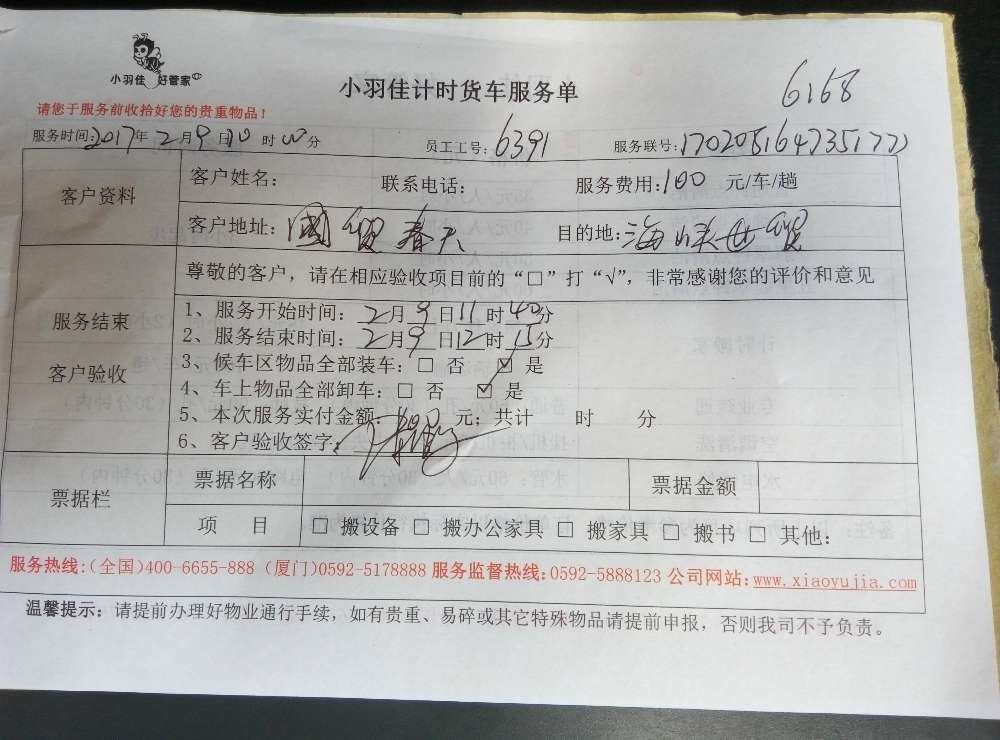 小羽佳 好管家
小羽佳计时货车服务单
6168
请您于服务前收拾好您的贵重物品！
服务时间：2017年2月9日10时00分 员工工号：6391 服务联号：
客户资料
客户姓名： 联系电话： 服务费用：100 元/车/趟
客户地址：國貿春天 目的地：海峡世贸
服务结束
客户验收
尊敬的客户，请在相应验收项目前的“□”打“√”，非常感谢您的评价和意见
1、服务开始时间：2月9日11时40分
2、服务结束时间：2月9日12时15分
3、候车区物品全部装车：□ 否 ☑ 是
4、车上物品全部卸车：□ 否 ☑ 是
5、本次服务实付金额 元；共计 时 分
6、客户验收签字：
票据栏
票据名称 票据金额
项 目 □ 搬设备 □ 搬办公家具 □ 搬家具 □ 搬书 □ 其他：
服务热线：(全国)400-6655-888 (厦门)0592-5178888 服务监督热线：0592-5888123 公司网站：www.xiaoyujia.com
温馨提示：请提前办理好物业通行手续，如有贵重、易碎或其它特殊物品请提前申报，否则我司不予负责。